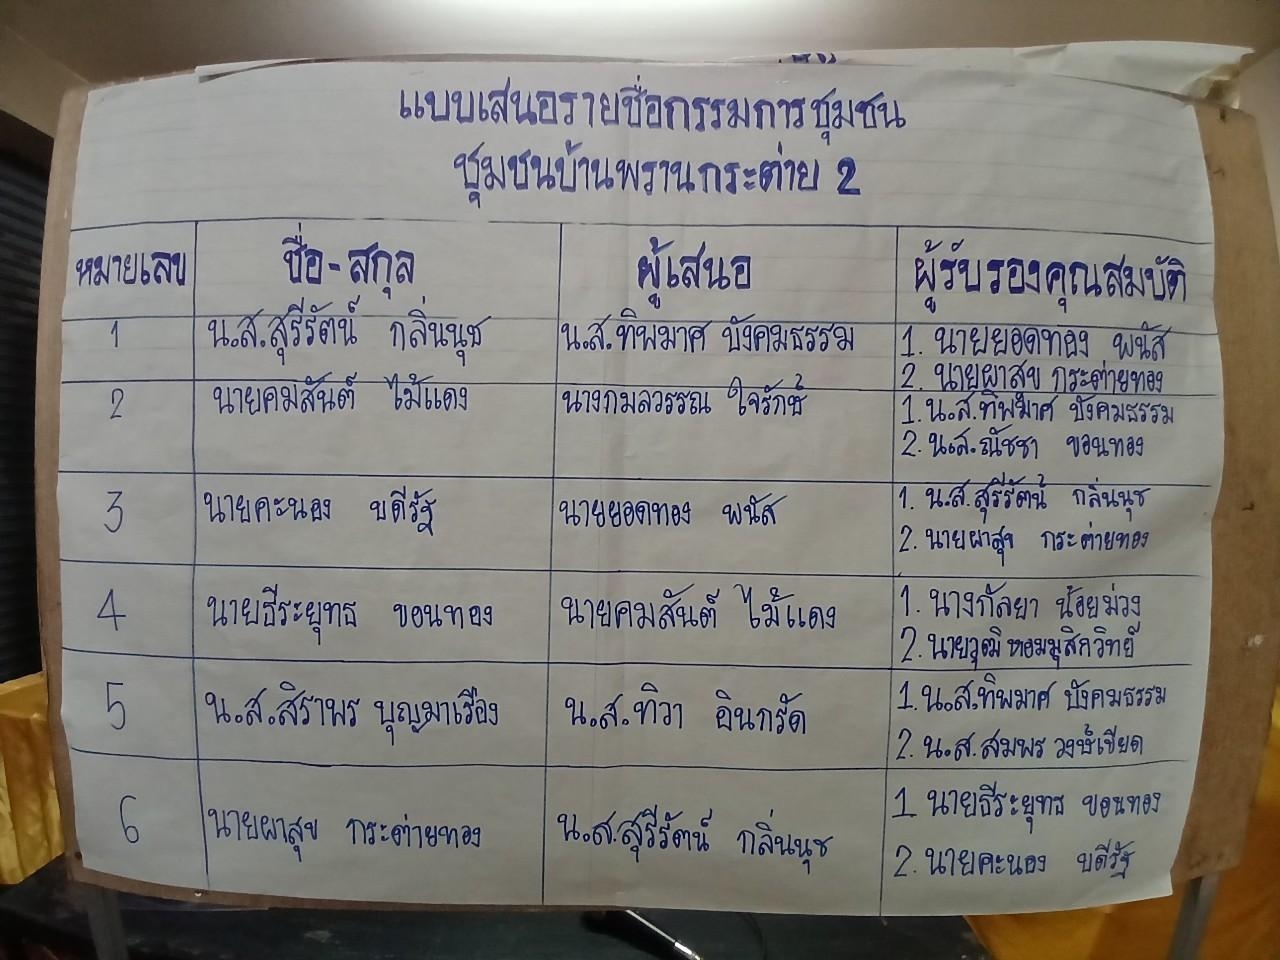 แบบเสนอรายชื่อกรรมการชุมชน
ชุมชนบ้านพรานกระต่าย 2
หมายเลข ชื่อ-สกุล ผู้เสนอ ผู้รับรองคุณสมบัติ
1 น.ส.สุรีรัตน์ กลิ่นนุช น.ส.ทิพมาศ บังคมธรรม 1. นายยอดทอง พนัส
2. นายผาสุข กระต่ายทอง
2 นายคมสันต์ ไม้แดง นางกมลวรรณ ใจรักษ์ 1. น.ส.ทิพมาศ บังคมธรรม
2. น.ส.ณัชชา ขอนทอง
3 นายคะนอง บดีรัฐ นายยอดทอง พนัส 1. น.ส.สุรีรัตน์ กลิ่นนุช
2. นายผาสุข กระต่ายทอง
4 นายธีระยุทธ ขอนทอง นายคมสันต์ ไม้แดง 1. นางกัลยา น้อยม่วง
2. นายวุฒิ หอมมุสิกวิทย์
5 น.ส.สิราพร บุญมาเรือง น.ส.ทิวา อินกรัด 1. น.ส.ทิพมาศ บังคมธรรม
2. น.ส.สมพร วงษ์เขียด
6 นายผาสุข กระต่ายทอง น.ส.สุรีรัตน์ กลิ่นนุช 1 นายธีระยุทธ ขอนทอง
2. นายคะนอง บดีรัฐ